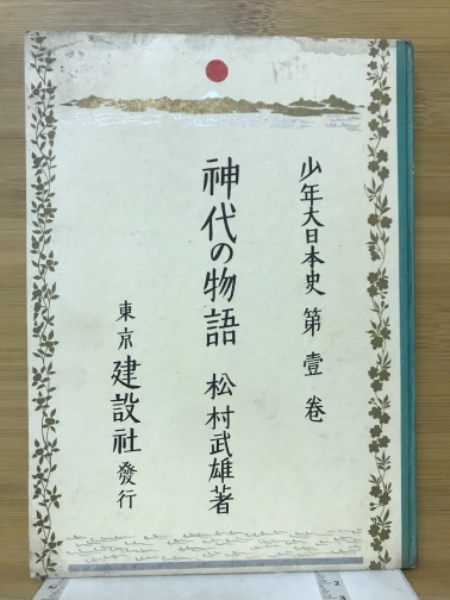 少年大日本史 第壹卷
神代の物語 松村武雄著
東京 建設社 發行